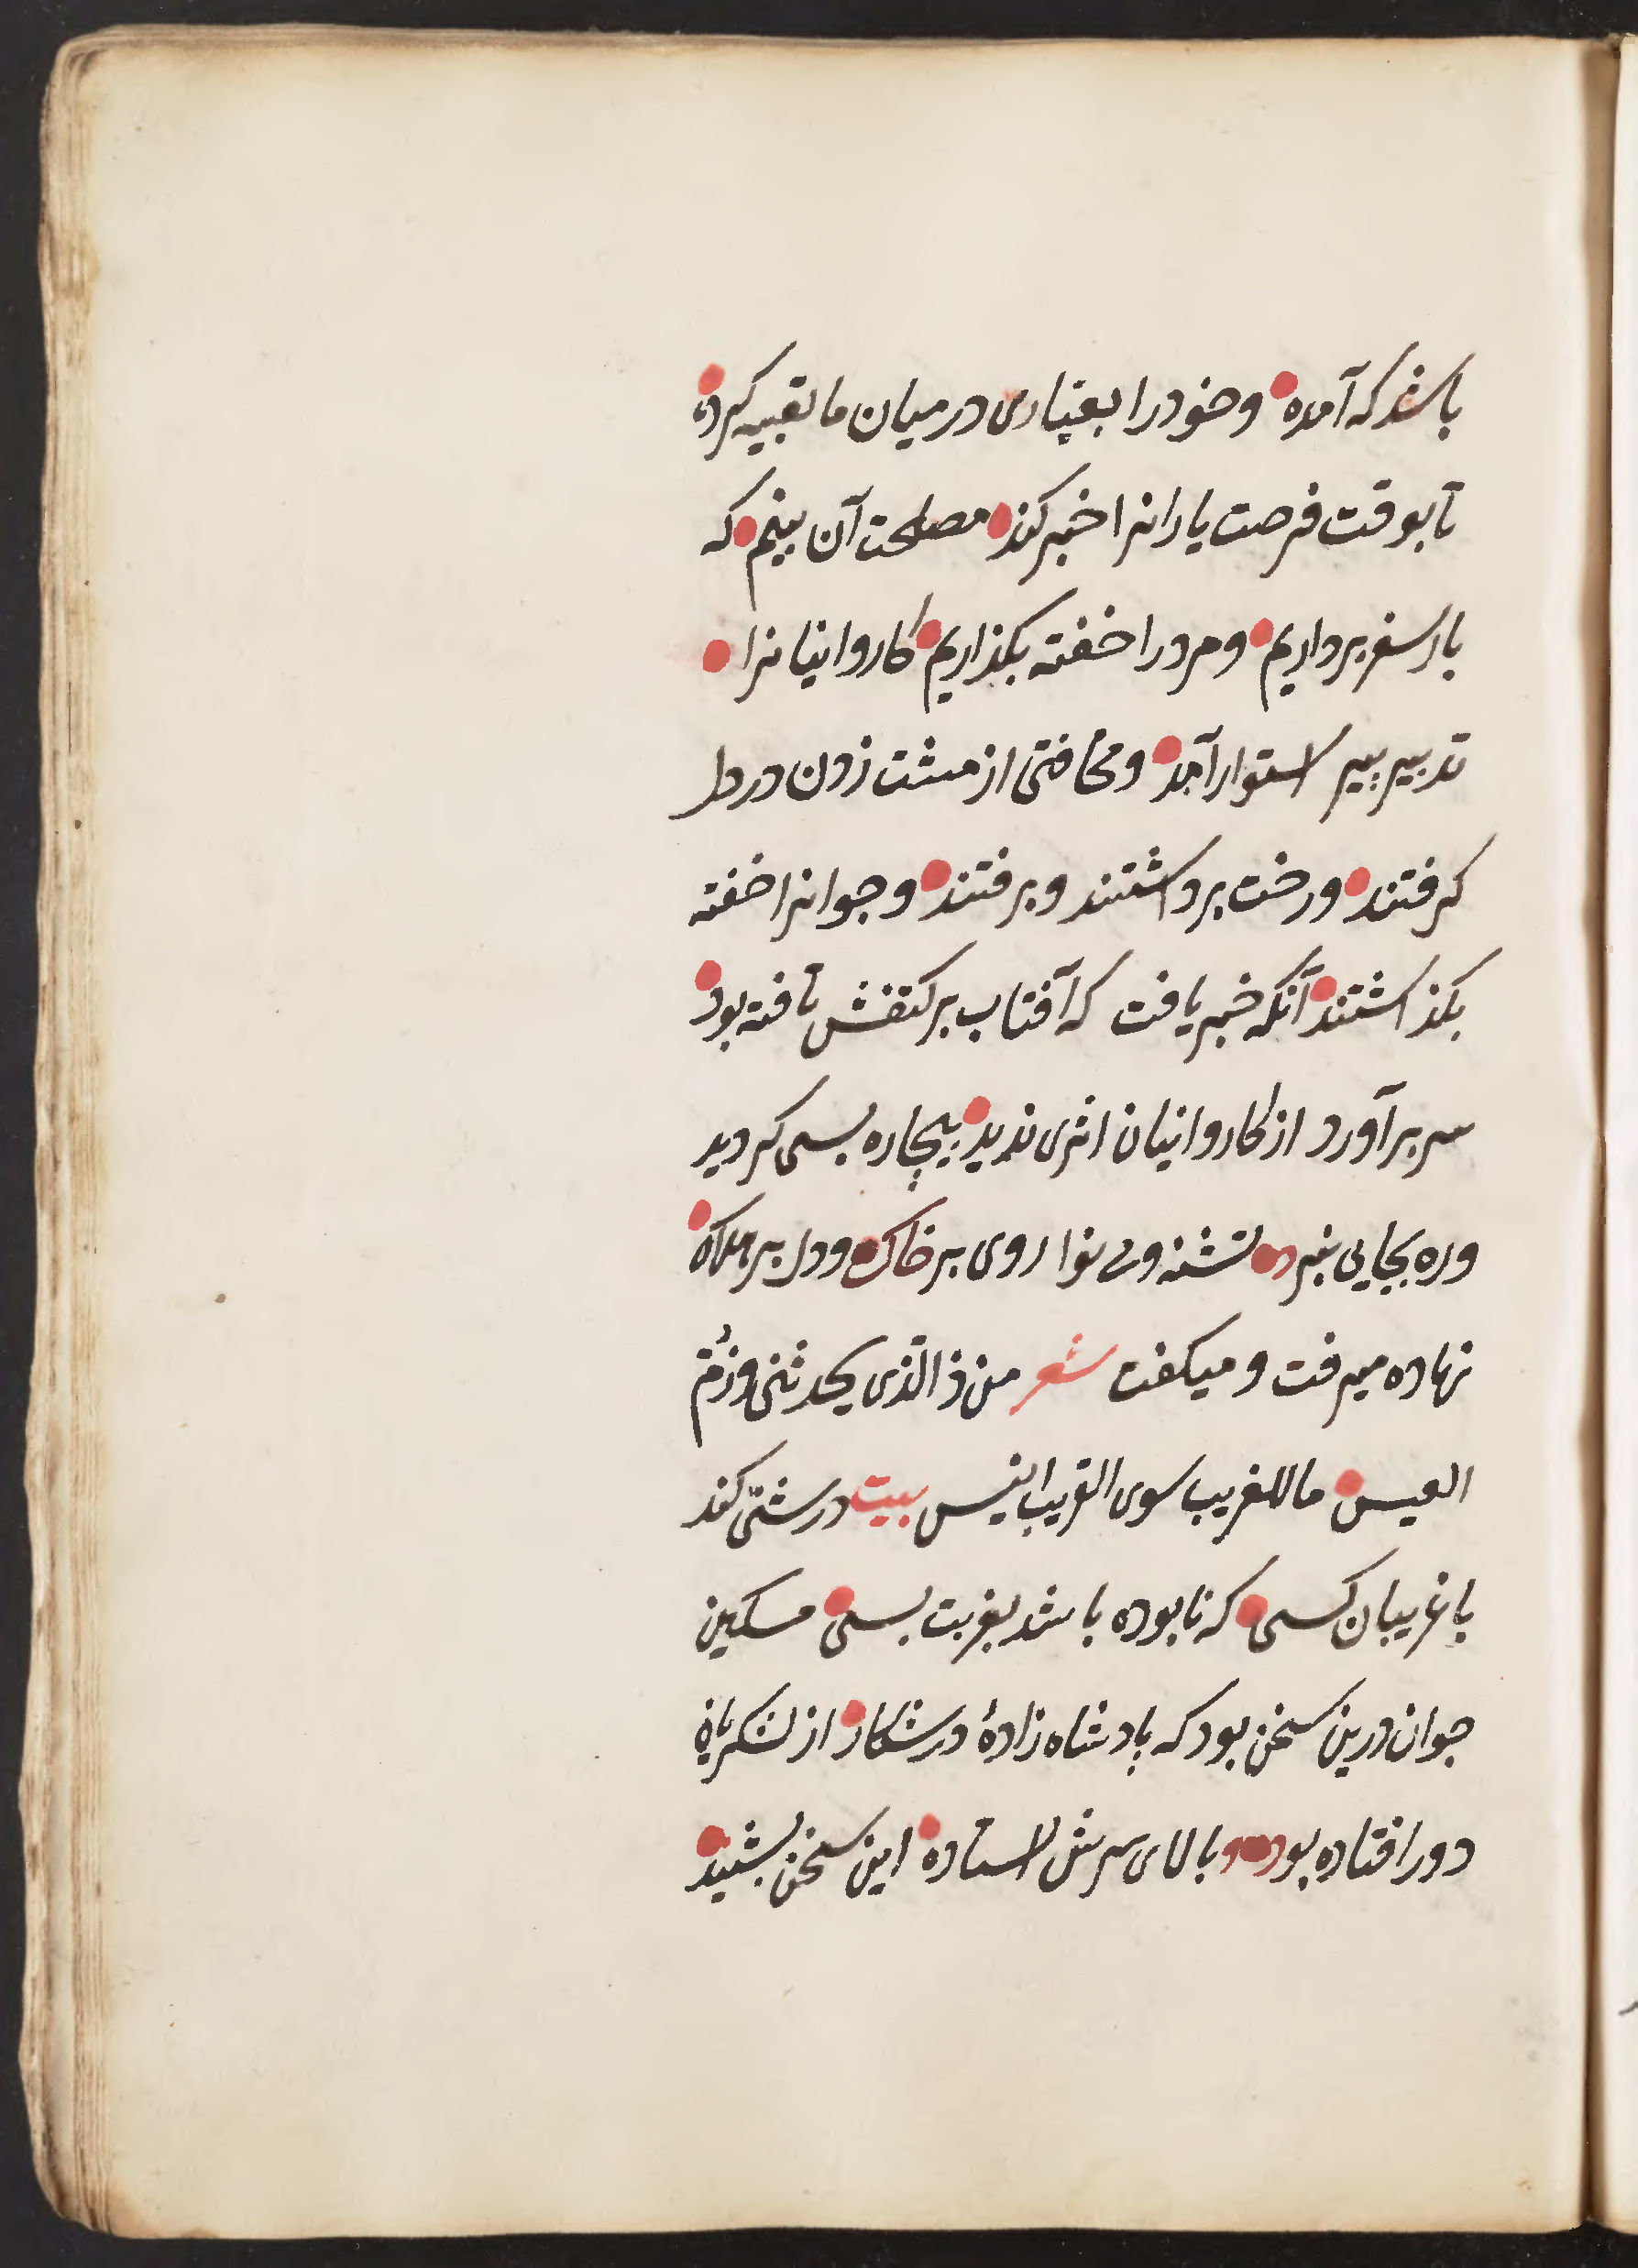 باشد که آمده و خود را بعیاری در میان ما تعبیه کرده
تا بوقت فرصت یارانرا خبر کند مصلحت آن بینم که
بار سفر برداریم و مرد را خفته بکذاریم کاروانیانرا
تدبیر پیر استوار آمد و مخافتی از مشت زن در دل
کرفتند و رخت برداشتند و برفتند و جوانرا خفته
بکذاشتند آنکه خبر یافت که آفتاب بر کتفش تافته بود
سر برآورد از کاروانیان اثری ندید بیچاره بسی کردید
و ره بجایی نبرد تشنه و بی نوا روی بر خاک و دل بر هلاک
نهاده میرفت و میکفت شعر من ذا الّذی یحدثنی و زُمّ
العیس ما للغریب سوی الغریب انیس بیت درشتی کند
با غریبان کسی که نابوده باشد بغربت بسی مسکین
جوان درین سخن بود که پادشاه زادهٔ در شکار از لشکریان
دور افتاده بود و بالای سرش استاده این سخن بشنید